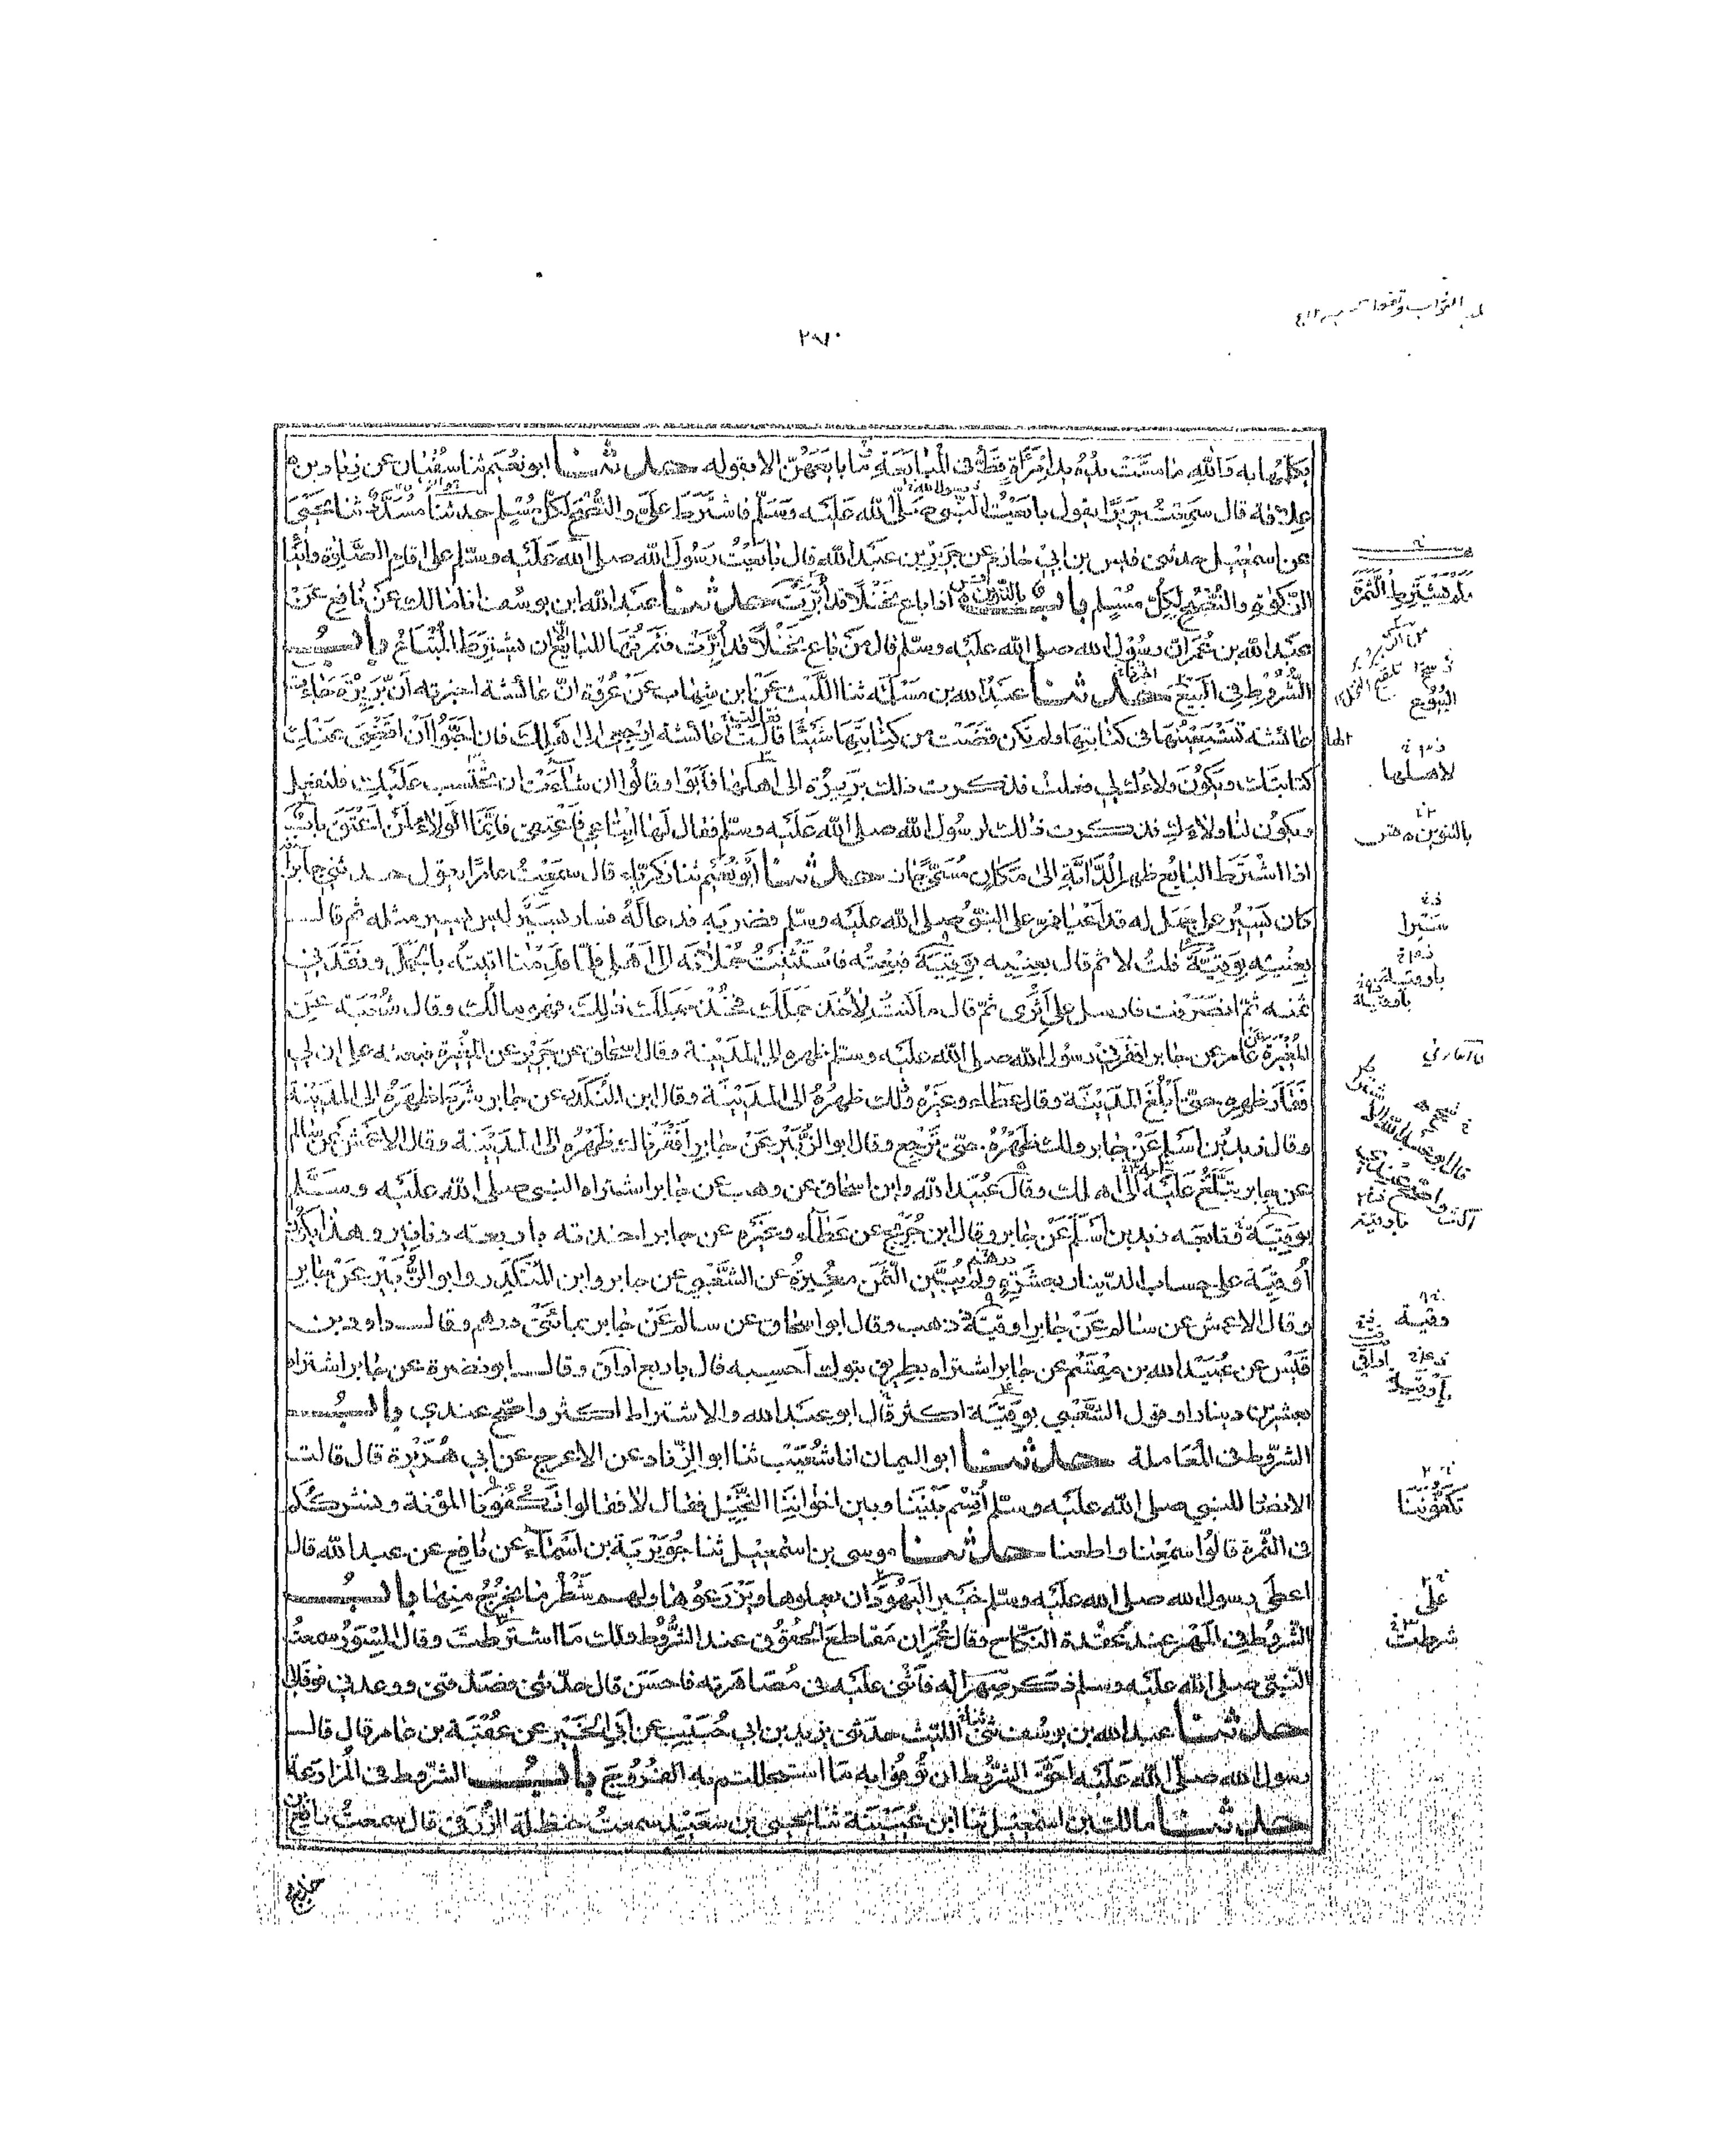 ٢٧٠
يكلمها به والله ما مست يده يد امرأة قط في المبايعة ما بايعهن الا بقوله حدثنا ابو نعيم ثنا سفيان عن زياد بن
علاقة قال سمعت جريرا يقول بايعت النبي صلى الله عليه وسلم فاشترط علي والنصح لكل مسلم حدثنا مسدد ثنا يحيى
عن اسمعيل حدثني قيس بن ابي حازم عن جرير بن عبد الله قال بايعت رسول الله صلى الله عليه وسلم على اقام الصلوة وايتاء
الزكوة والنصح لكل مسلم باب اذا باع نخلا قد ابرت حدثنا عبد الله ابن يوسف انا مالك عن نافع عن
عبد الله بن عمر ان رسول الله صلى الله عليه وسلم قال من باع نخلا قد ابرت فثمرتها للبايع الا ان يشترط المبتاع باب
الشروط في البيع حدثنا عبد الله بن مسلمة ثنا الليث عن ابن شهاب عن عروة ان عائشة اخبرته ان بريرة جاءت
عائشة تستعينها في كتابتها ولم تكن قضت من كتابتها شيئا قالت لها عائشة ارجعي الى اهلك فان احبوا ان اقضي عنك
كتابتك ويكون ولاءك لي فعلت فذكرت ذلك بريرة الى اهلها فابوا وقالوا ان شاءت ان تحتسب عليك فلتفعل
ويكون لنا ولاءك فذكرت ذلك لرسول الله صلى الله عليه وسلم فقال لها ابتاعي فاعتقي فانما الولاء لمن اعتق باب
اذا اشترط البايع ظهر الدابة الى مكان مسمى جاز حدثنا ابو نعيم ثنا زكرياء قال سمعت عامرا يقول حدثني جابر انه
كان يسير على جمل له قد اعيا فمر على النبي صلى الله عليه وسلم فضربه فدعا له فسار بسير ليس يسير مثله ثم قال
بعنيه بوقية قلت لا ثم قال بعنيه بوقية فبعته فاستثنيت حملانه الى اهلي فلما قدمنا اتيته بالجمل ونقدني
ثمنه ثم انصرفت فارسل على اثري ثم قال ما كنت لاخذ جملك فخذ جملك ذلك فهو مالك وقال شعبة عن
المغيرة عن عامر عن جابر افقرني رسول الله صلى الله عليه وسلم ظهره الى المدينة وقال اسحاق عن جرير عن المغيرة فبعته على ان لي
فقار ظهره حتى ابلغ المدينة وقال عطاء وغيره ولك ظهره الى المدينة وقال ابن المنكدر عن جابر شرط ظهره الى المدينة
وقال زيد بن اسلم عن جابر ولك ظهره حتى ترجع وقال ابو الزبير عن جابر افقرناك ظهره الى المدينة وقال الاعمش عن سالم
عن جابر تبلغ عليه الى اهلك وقال عبيد الله وابن اسحاق عن وهب عن جابر اشتراه النبي صلى الله عليه وسلم
بوقية وتابعه زيد بن اسلم عن جابر وقال ابن جريج عن عطاء وغيره عن جابر اخذته باربعة دنانير وهذا يكون
أوقية على حساب الدينار بعشرة دراهم ولم يبين الثمن مغيرة عن الشعبي عن جابر وابن المنكدر وابو الزبير عن جابر
وقال الاعمش عن سالم عن جابر اوقية ذهب وقال ابو اسحاق عن سالم عن جابر بمائتي درهم وقال داود بن
قيس عن عبيد الله بن مقسم عن جابر اشتراه بطريق تبوك احسبه قال باربع اواق وقال ابو نضرة عن جابر اشتراه
بعشرين دينارا وقول الشعبي بوقية اكثر قال ابو عبد الله والاشتراط اكثر واصح عندي باب
الشروط في المعاملة حدثنا ابو اليمان انا شعيب ثنا ابو الزناد عن الاعرج عن ابي هريرة قال قالت
الانصار للنبي صلى الله عليه وسلم اقسم بيننا وبين اخواننا النخيل فقال لا فقالوا تكفونا المؤنة ونشرككم
في الثمرة قالوا سمعنا واطعنا حدثنا موسى بن اسمعيل ثنا جويرية بن اسماء عن نافع عن عبد الله قال
اعطى رسول الله صلى الله عليه وسلم خيبر اليهود ان يعملوها ويزرعوها ولهم شطر ما يخرج منها باب
الشروط في المهر عند عقدة النكاح وقال عمر ان مقاطع الحقوق عند الشروط ولك ما اشترطت وقال المسور سمعت
النبي صلى الله عليه وسلم ذكر صهرا له فاثنى عليه في مصاهرته فاحسن قال حدثني فصدقني ووعدني فوفى لي
حدثنا عبد الله بن يوسف ثني الليث حدثني يزيد بن ابي حبيب عن ابي الخير عن عقبة بن عامر قال قال
رسول الله صلى الله عليه احق الشروط ان توفوا به ما استحللتم به الفروج باب الشروط في المزارعة
حدثنا مالك بن اسمعيل ثنا ابن عيينة ثنا يحيى بن سعيد سمعت حنظلة الزرقي قال سمعت رافع
ولم يشترط الثمرة
البيوع
لاهلها
بالتنوين
سيرا
باوقية
باوقية
وقية
اواقي
باوقية
تكفوننا
على
شرطت